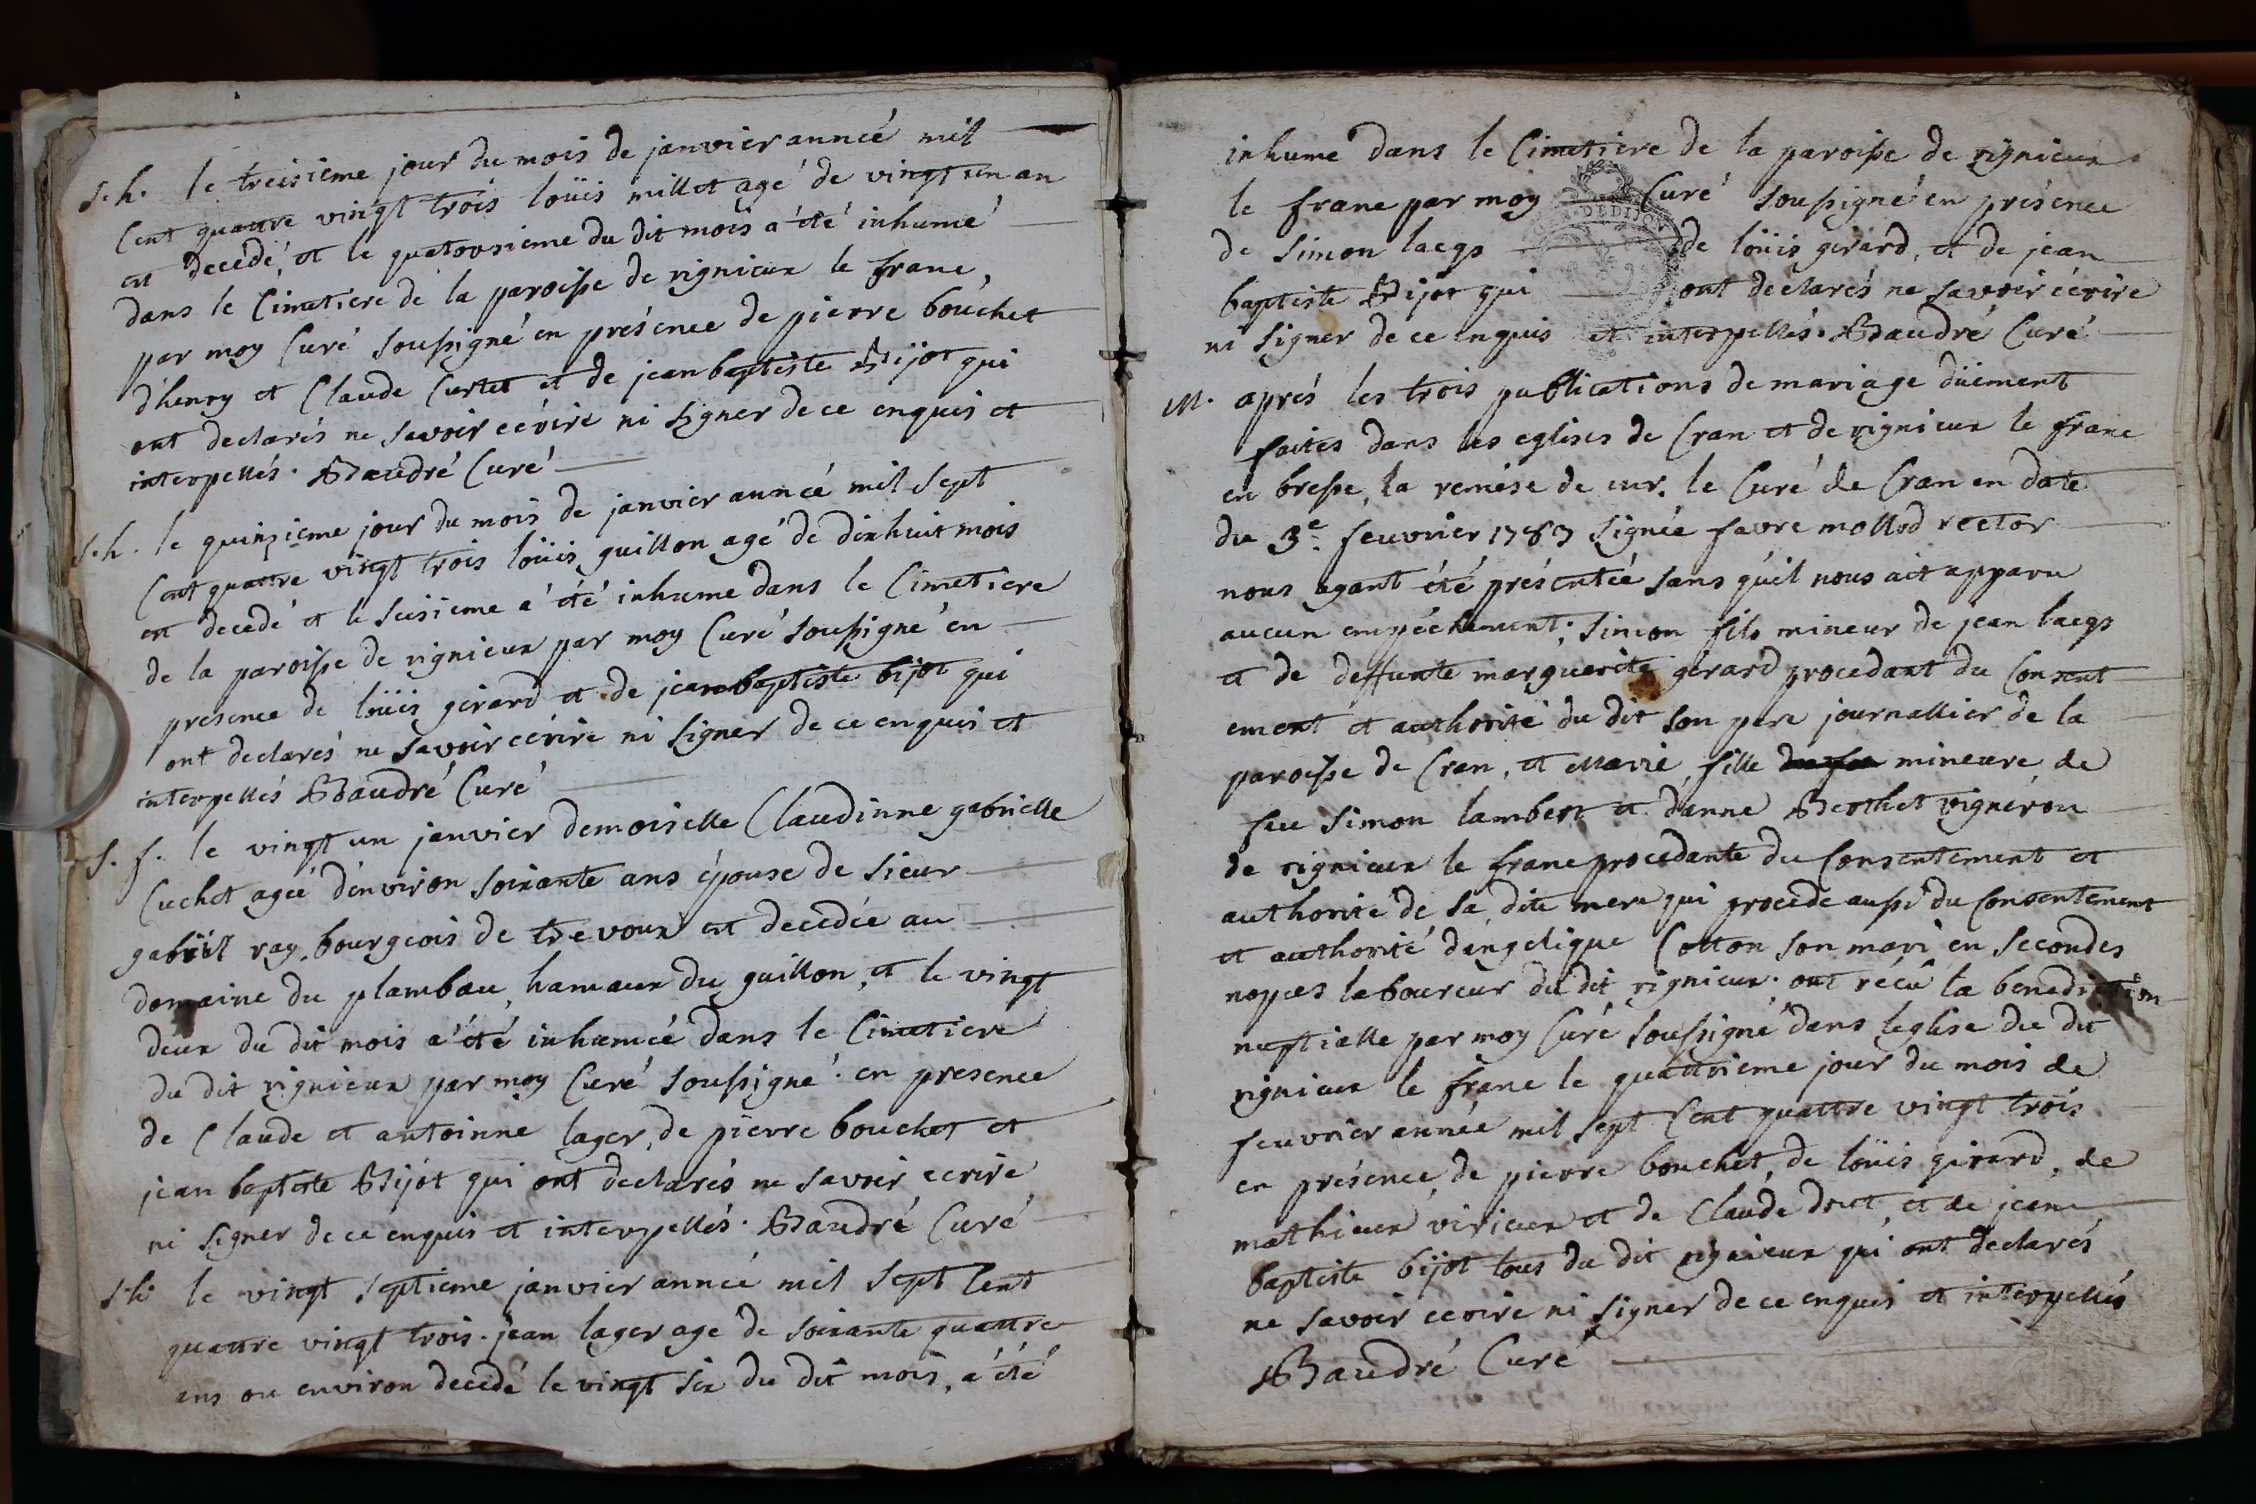 s.h. le treisieme jour du mois de janvier anneé mil
Cent quattre vingt trois loüis millet agé de vingt un an
est decedé, et le quatorsieme du dit mois a été inhumé
dans le Cimetiere de la paroisse de rignieux le franc,
par moy Curé soussigné en présence de pierre bouchet
d'henry et Claude Curtet et de jean baptiste Bijot qui
ont declarés ne savoir ecrire ni signer de ce enquis et
interpellés. Baudré Curé
s.h. le quinzieme jour du mois de janvier anneé mil sept
Cent quattre vingt trois loüis guillon agé de dixhuit mois
est decedé et le seisieme a été inhumé dans le Cimetiere
de la paroisse de rignieux par moy Curé soussigné en
presence de loüis gerard et de jean baptiste bijot qui
ont declarés ne savoir ecrire ni signer de ce enquis et
interpellés Baudré Curé
s.f. le vingt un janvier demoiselle Claudinne gabrielle
Cuchet ageé d'environ soixante ans épouse de sieur
gabriël ray, bourgeois de trevoux est decedée au
domaine du plambeau, hamaux du guillon, et le vingt
deux du dit mois a été inhumeé dans le Cimetiere
du dit rignieux par moy Curé soussigné. en presence
de Claude et antoinne lager, de pierre bouchet et
jean baptiste Bijot qui ont declarés ne savoir ecrire
ni signer de ce enquis et interpellés. Baudré Curé
s.h. le vingt septieme janvier anneé mil sept Cent
quattre vingt trois. jean lager agé de soixante quattre
ans ou environ decedé le vingt six du dit mois, a été
inhumé dans le Cimetiere de la paroisse de rignieux
le franc par moy Curé soussigné en présence
de simon lacqs de loüis gerard, et de jean
baptiste Bijot qui ont déclarés ne savoir écrire
ni signer de ce enquis et interpellés. Baudré Curé
M. aprés les trois publications de mariage düement
faites dans les eglises de Cran et de rignieux le franc
en bresse, la remise de mr. le Curé de Cran en date
du 3e. feuvrier 1783 signée favre mollod rector
nous ayant été présenteé sans qu'il nous ait apparu
aucun empêchement; simon fils mineur de jean lacqs
et de deffunte marguerite gerard procedant du Consent
ement et authorité du dit son pere journallier de la
paroisse de Cran, et Marie, fille mineure de
feu simon lambert et d'anne Berthet vigneron
de rignieux le franc procedante du Consentement et
authorité de sa dite mere qui procede aussi du Consentement
et authorité d'engelique Cotton son mari en secondes
nopces laboureur du dit rignieux. ont récû la benediction
nuptialle par moy Curé soussigné dans l'eglise du dit
rignieux le franc le quattrieme jour du mois de
feuvrier année mil sept Cent quattre vingt trois
en présence, de pierre bouchet, de loüis girard, de
mathieux virieux et de Claude druet, et de jean
baptiste bijot tous du dit rignieux qui ont declarés
ne savoir ecrire ni signer de ce enquis et interpellés
Baudré Curé